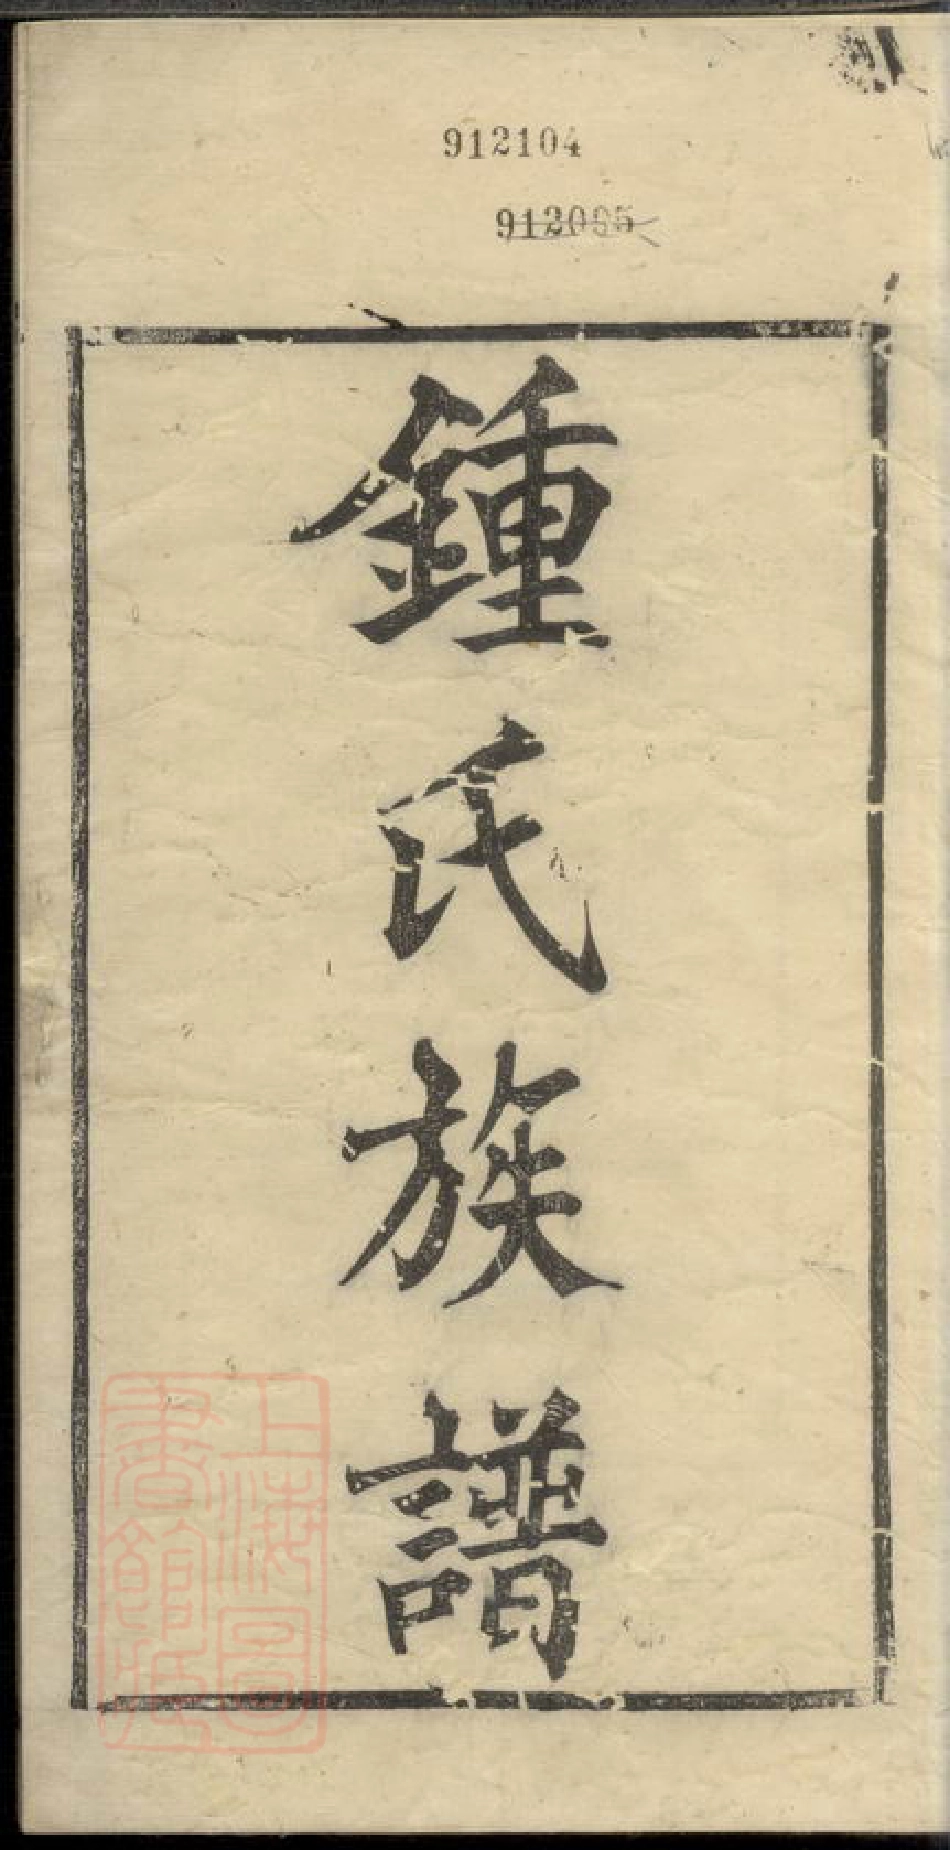 912104
912095
鍾氏族譜
上海圖
書館藏